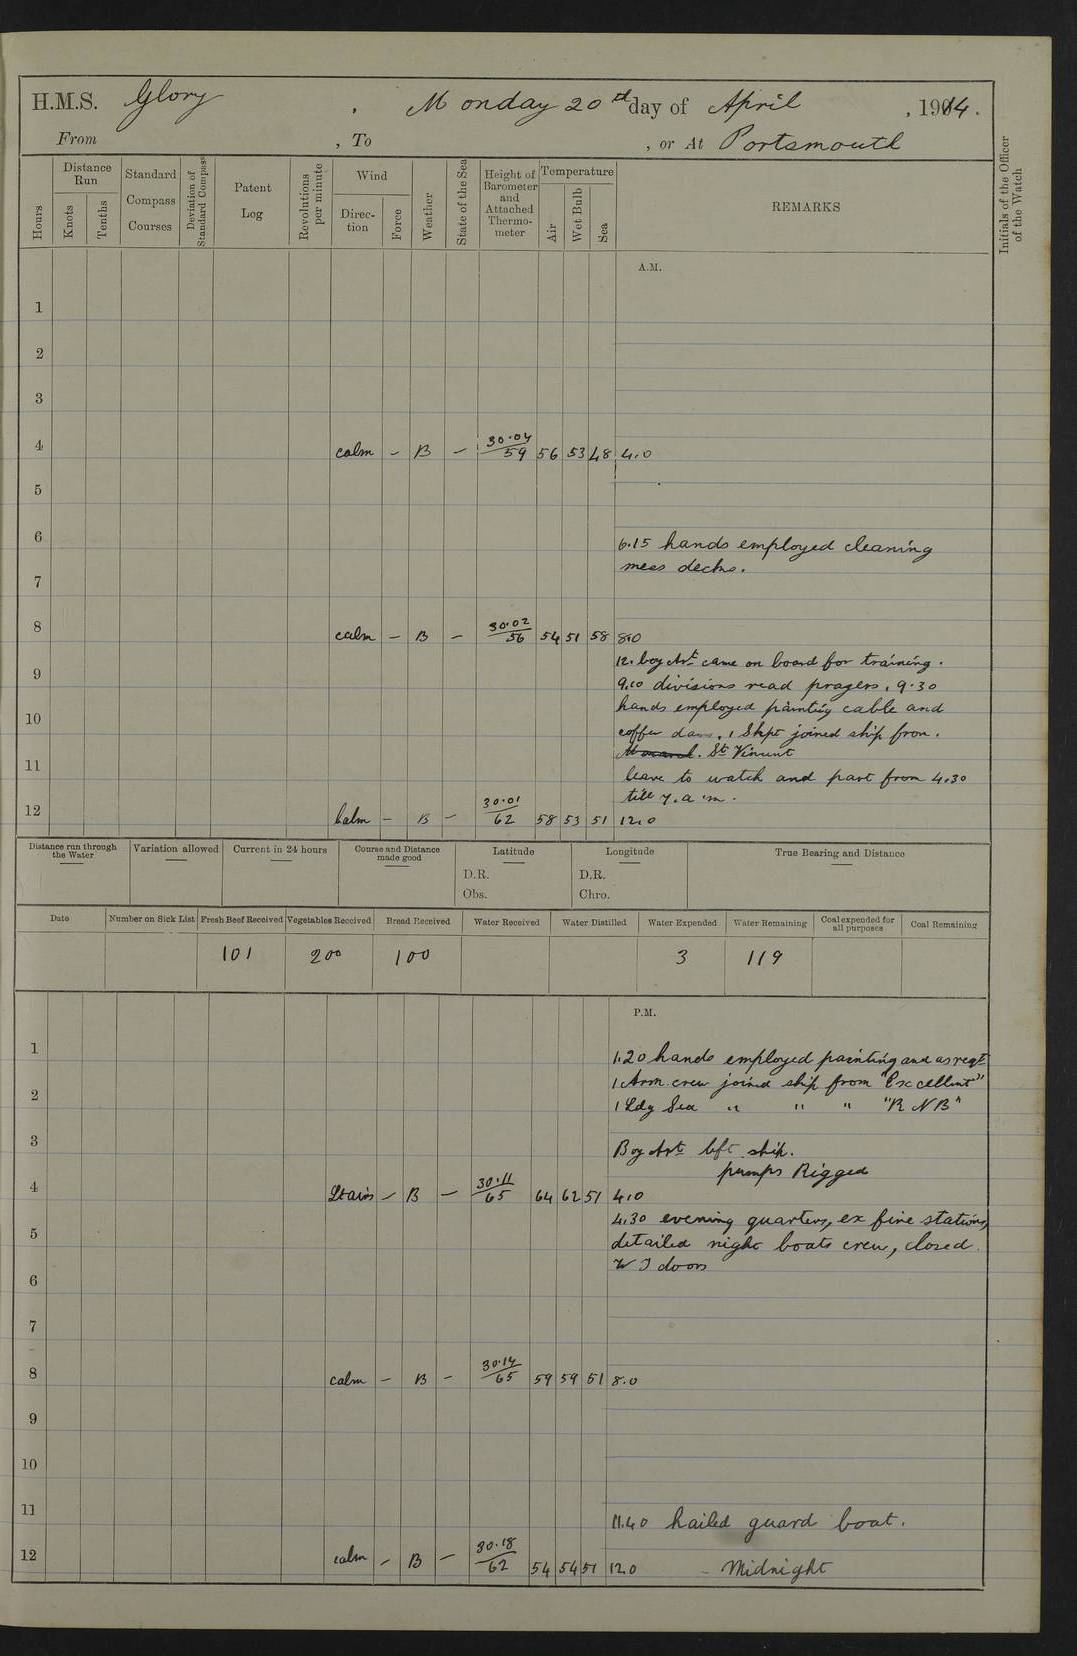 H.M.S. Glory , Monday 20th day of April , 1914.
From , To , or At Portsmouth
Hours
Distance Run
Knots
Tenths
Standard Compass Courses
Deviation of Standard Compass
Patent Log
Revolutions per minute
Wind
Direc-tion
Force
Weather
State of the Sea
Height of Barometer and Attached Thermo-meter
Temperature
Air
Wet Bulb
Sea
REMARKS
Initials of the Officer of the Watch
A.M.
1
2
3
4 calm – B – 30.04/59 56 53 48 4.0
5
6
6.15 hands employed cleaning
mess decks.
7
8 calm – B – 30.02/56 54 51 58 8.0
12. boy Art. came on board for training.
9
9.10 divisions read prayers. 9.30
hands employed painting cable and
10
coffer dams. 1 Shpt joined ship from.
St Vincent
11
leave to watch and part from 4.30
till 7. a.m.
12 Calm – B – 30.01/62 58 53 51 12.0
Distance run through the Water
Variation allowed
Current in 24 hours
Course and Distance made good
Latitude
D.R.
Obs.
Longitude
D.R.
Chro.
True Bearing and Distance
Date
Number on Sick List
Fresh Beef Received
Vegetables Received
Bread Received
Water Received
Water Distilled
Water Expended
Water Remaining
Coal expended for all purposes
Coal Remaining
101 200 100 3 119
P.M.
1
1.20 hands employed painting and as reqt
1 Arm. crew joined ship from "Excellent"
2
1 Ldg Sea " " " "R N B"
3
Boy Art. left ship.
pumps Rigged
4 – B – 30.11/65 64 62 51 4.0
4.30 evening quarters, ex fire stations,
5
detailed night boats crew, closed.
W T doors
6
7
8 calm – B – 30.14/65 59 59 51 8.0
9
10
11
11.40 hailed guard boat.
12 calm – B – 30.18/62 54 54 51 12.0 – Midnight